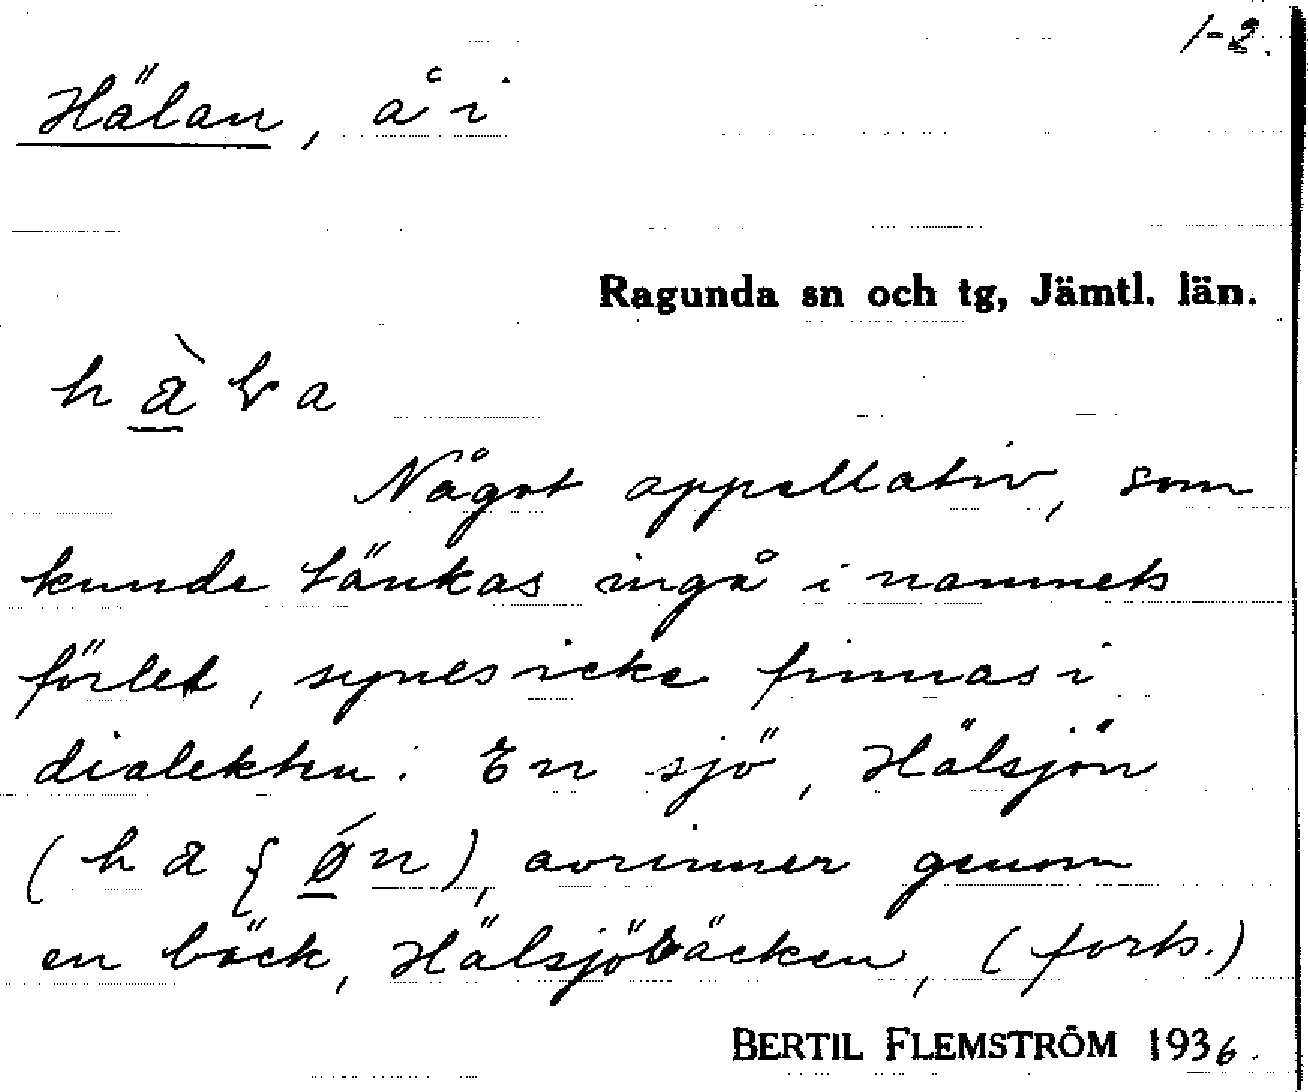 1-2.
Hälan, å i
Ragunda sn och tg, Jämtl. län.
Något appellativ, som
kunde tänkas ingå i namnets
förled, synes icke finnas i
dialekten. En sjö, Hälsjön
avrinner genom
en bäck, Hälsjöbäcken, (forts.)
BERTIL FLEMSTRÖM 1936.